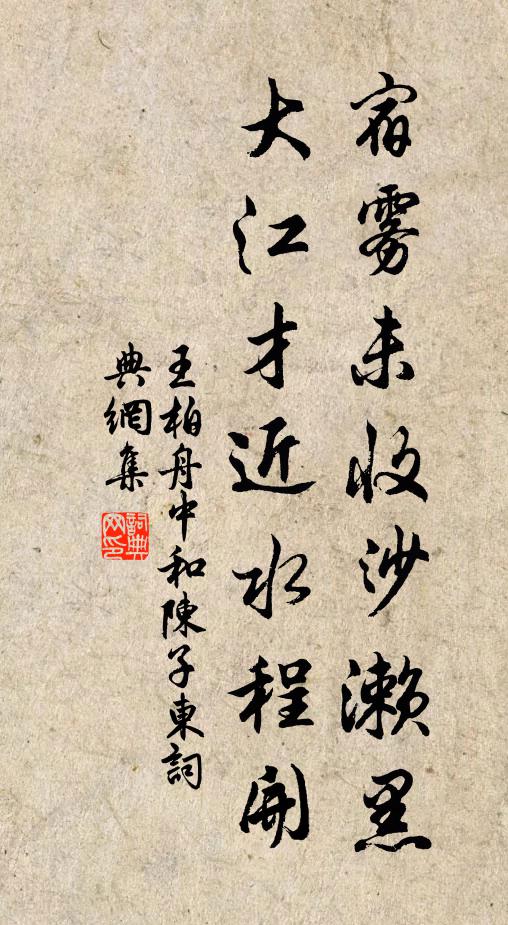 宿雾未收沙濑黑
大江才近水程開
王柏舟中和陳子東詞
典網集
詞典网印